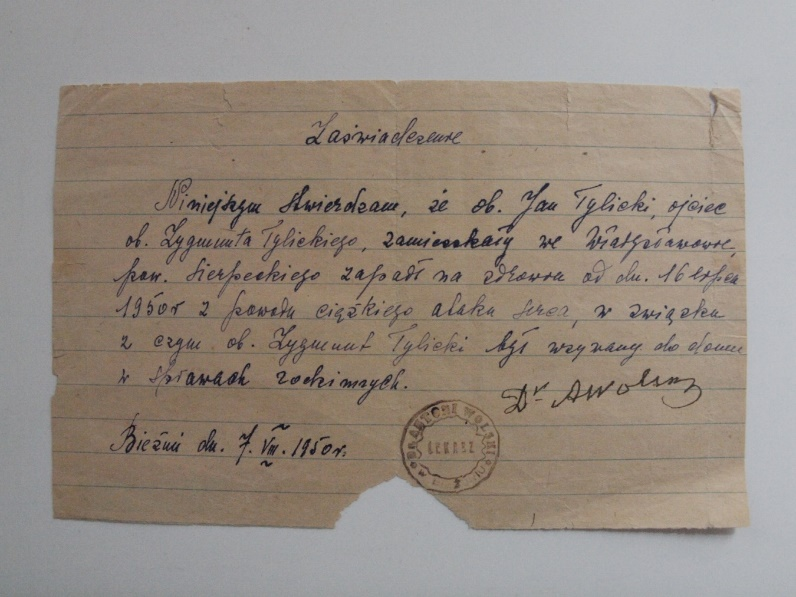 Zaświadczenie
Niniejszym stwierdzam, że ob. Jan Tylicki, ojciec
ob. Zygmunta Tylickiego, zamieszkały we Władysławowie,
pow. Sierpeckiego zapadł na zdrowiu od dn. 16 lipca
1950r z powodu ciężkiego ataku serca, w związku
z czym ob. Zygmunt Tylicki był wzywany do domu
w sprawach rodzinnych.
Dr AWolski
Bieżuń dn. 7. VIII. 1950r.
DR ANTONI WOLSKI
LEKARZ